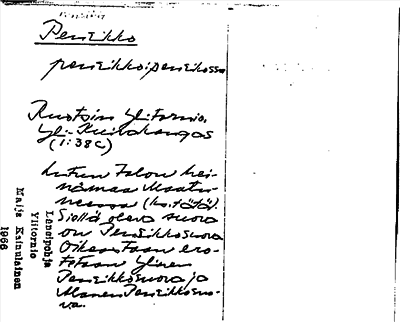 Penikko
penikko: penikossa
Ruotsin Ylitornio,
Yli-Kuivakangas
(1:38C)
talon hei-
nämaa
nessa (ks. tätä).
Siellä oleva suora
on Penikkosuora
Oikeastaan ero-
tetaan Ylinen
Penikkosuora ja
Alanen Penikkosuo-
ra.
Länsipohja
Ylitornio
Maija Kainulainen
1966